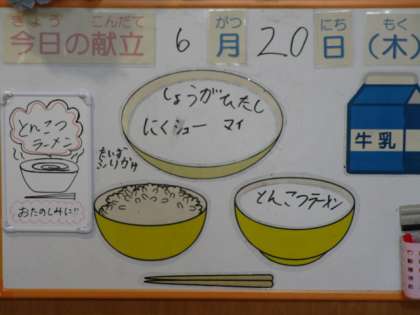 きょう こんだて がつ にち もく
今日の献立 6月20日(木)
しょうがひたし
にくシュー マイ
とんこつ
ラーメン
おたのしみに!!
とんこつラーメン
牛乳